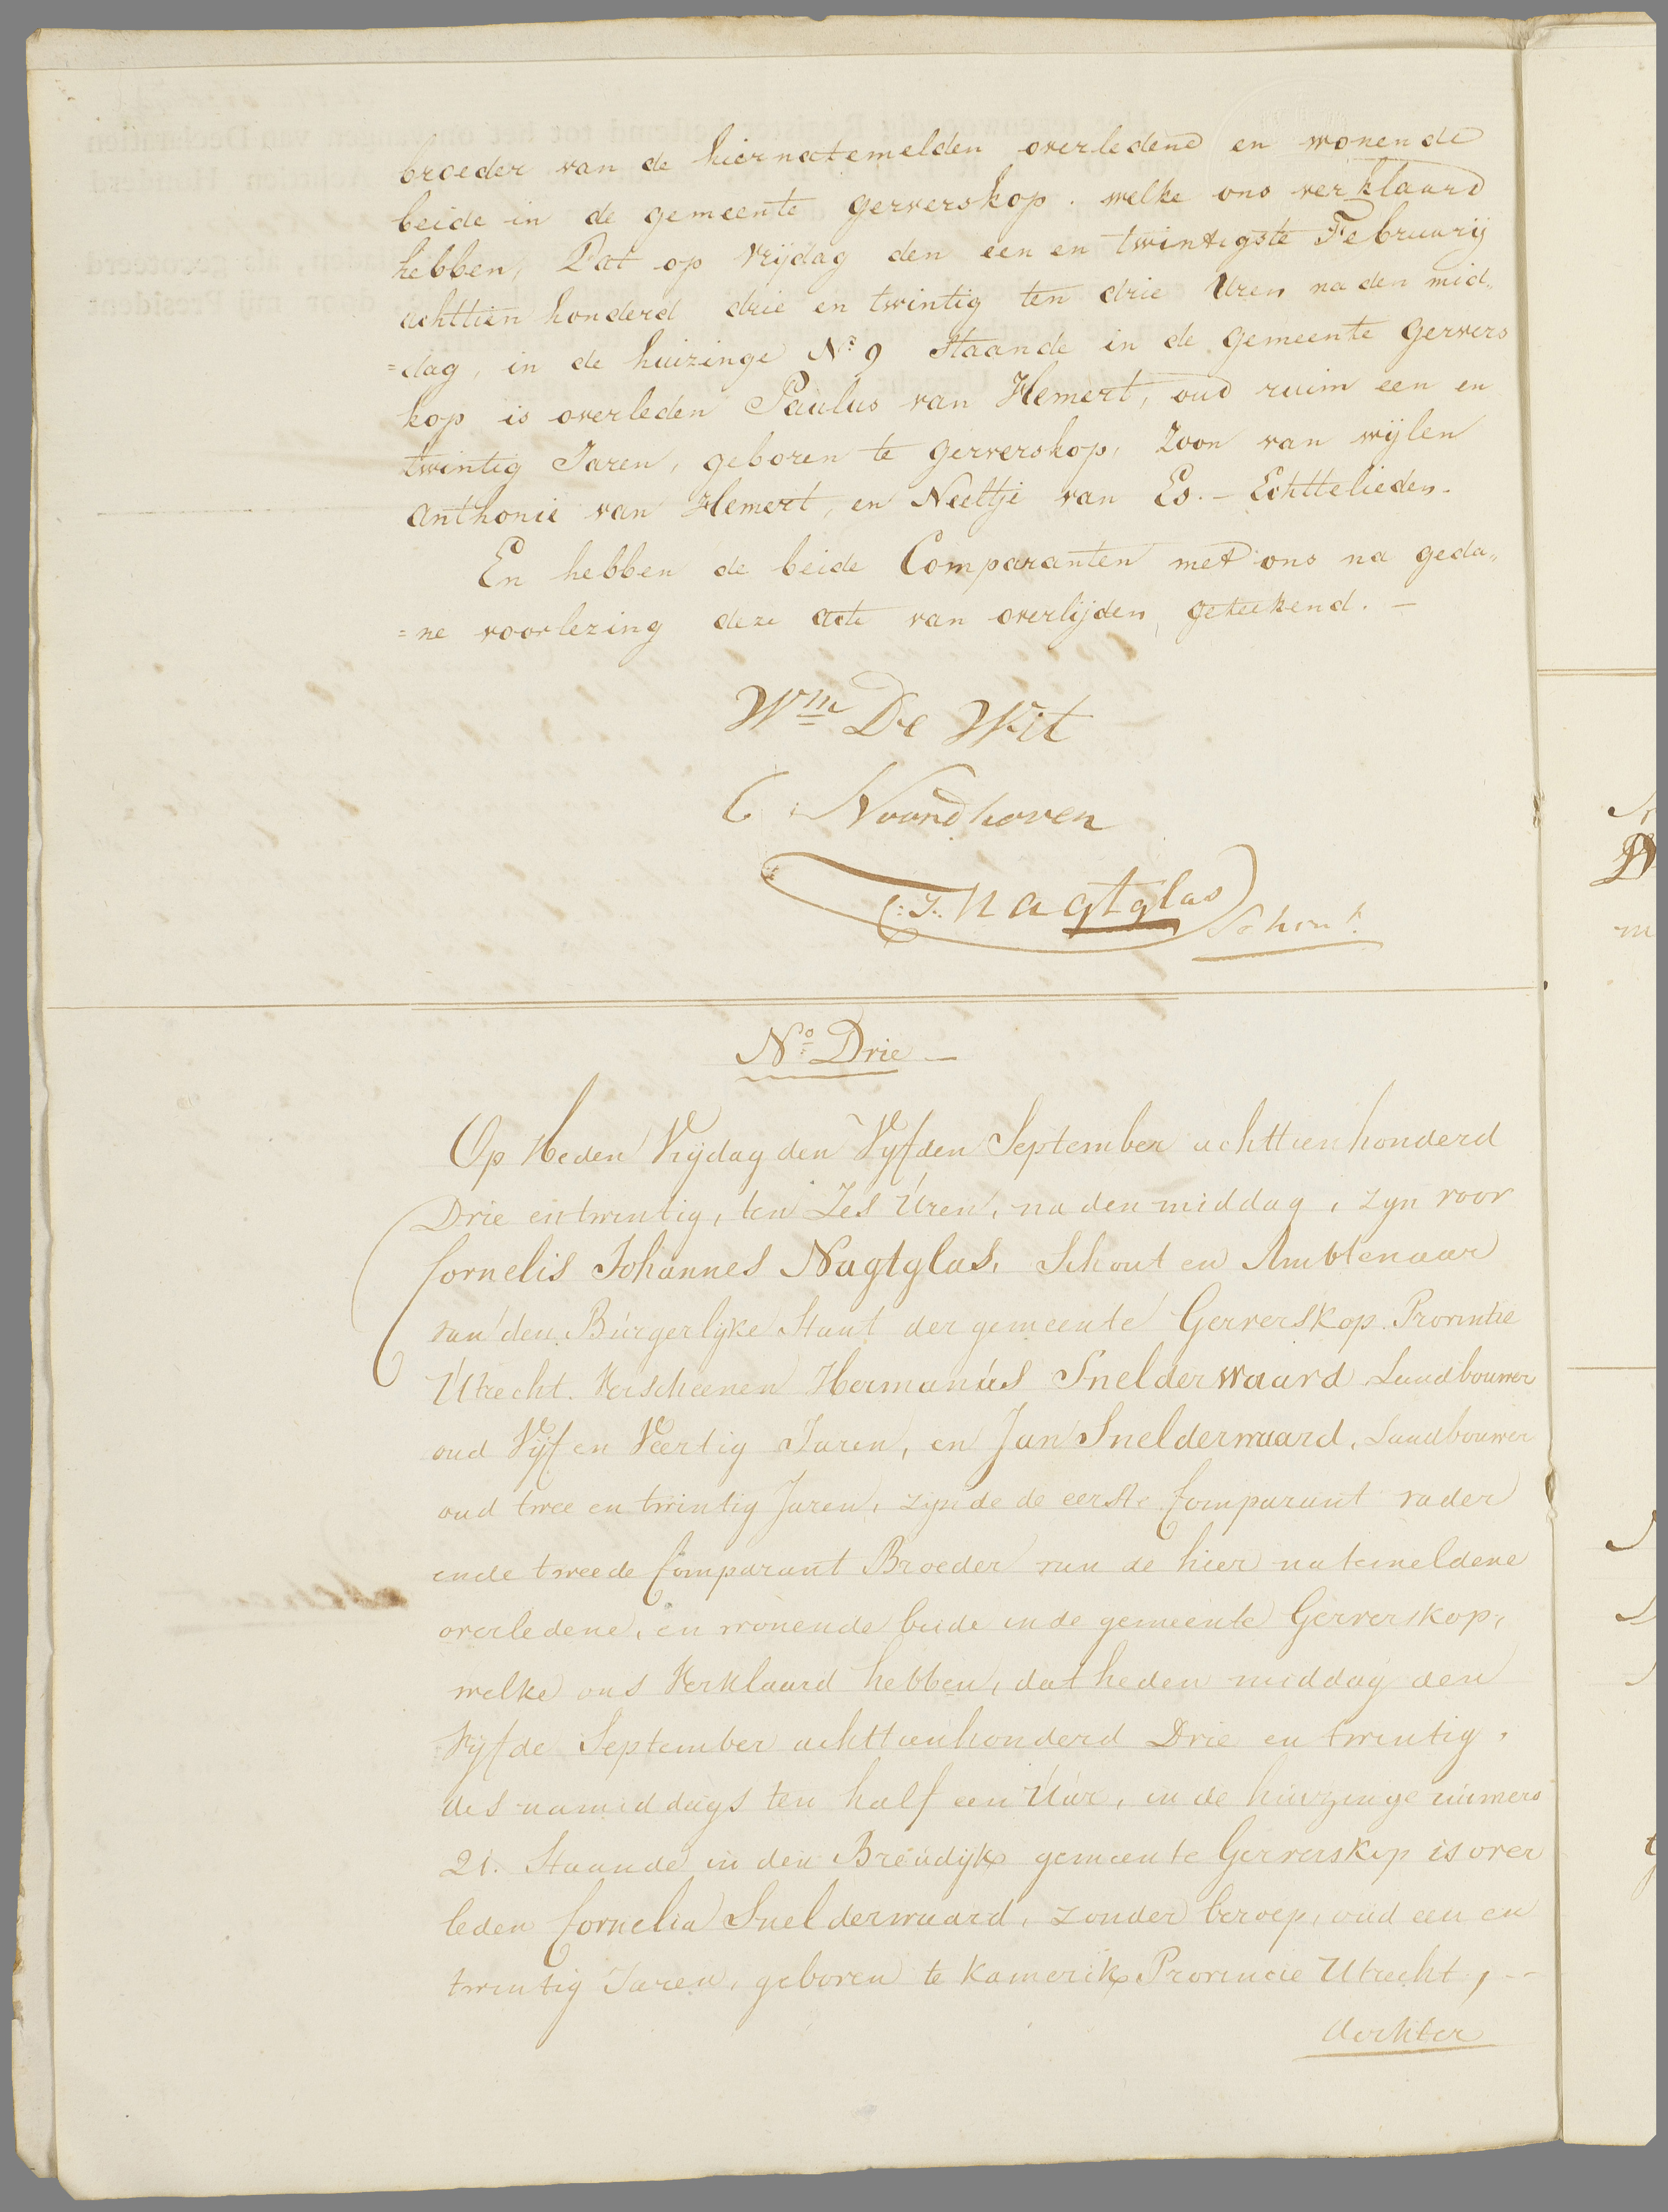 broeder van de hiernatemelden overledene en wonende
beide in de gemeente gerverskop. welke ons verklaard
hebben, Dat op Vrijdag den een en twintigste Februarij
achttien honderd drie en twintig ten drie Uren na den mid„
=dag, in de huizinge No. 9 Staande in de gemeente gervers
kop is overleden Paulus van Hemert, oud ruim een en
twintig Jaren, geboren te gerverskop, Zoon van wijlen
anthonie van Hemert, en Neeltje van Es. - Echttelieden.
En hebben de beide Comparanten met ons na geda„
=ne voorlezing deze acte van overlijden, geteekend. -
Wm De Wit
C: Noordhoven
C:J: Nagtglas Schout.
No. Drie -
Op Heden Vrijdag den Vyfden September achttienhonderd
Drie en twintig, ten Zes Uren, na den middag, zyn voor
Cornelis Johannes Nagtglas, Schout en Ambtenaar
van den Burgerlyke Stant der gemeente Gerverskop Provintie
Utrecht. Verscheenen Hermanus Snelderwaard Landbouwer
oud Vijf en Veertig Jaren, en Jan Snelderwaard, Landbouwer
oud twee en twintig Jaren, zynde de eerste Comparant vader
ende tweede Comparant Broeder van de hier natemeldene
overledene, en wonende beide in de gemeente Gerverskop,
welke ons Verklaard hebben, dat heden middag den
Vyfde September achttienhonderd Drie en twintig,
des namiddags ten half een Uur, in de huizinge numero
21. Staande in den Breudyk gemeente Gerverskop is over
leden Cornelia Snelderwaard, zonder beroep, oud een en
twintig Jaren, geboren te Kamerik Provincie Utrecht, -
dochter